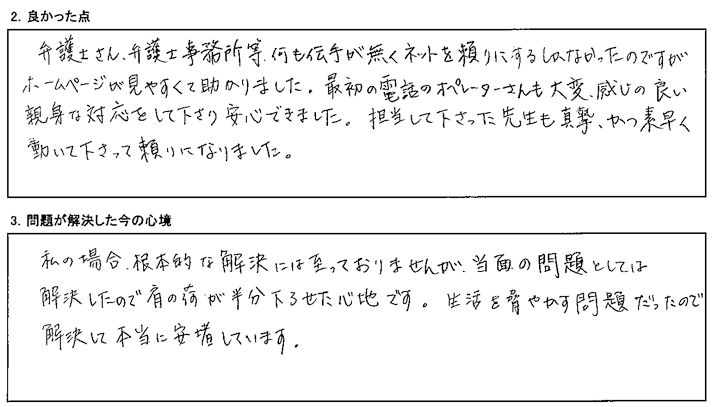 2. 良かった点
弁護士さん、弁護士事務所等、何も伝手が無くネットを頼りにするしかなかったのですが
ホームページが見やすくて助かりました。最初の電話のオペレーターさんも大変、感じの良い
親身な対応をして下さり安心できました。担当して下さった先生も真摯、かつ素早く
動いて下さって頼りになりました。
3. 問題が解決した今の心境
私の場合、根本的な解決には至っておりませんが、当面の問題としては
解決したので肩の荷が半分下ろせた心地です。生活を脅やかす問題だったので
解決して本当に安堵しています。